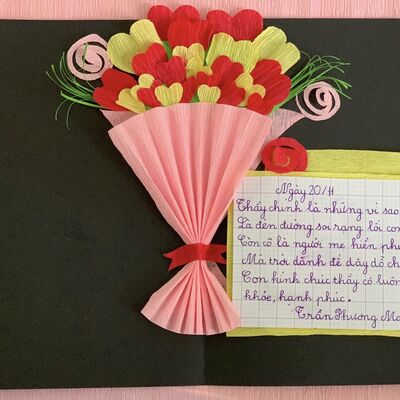 Ngày 20/11
Thầy chính là những vì sao
Là đèn đường soi rạng lối con
Còn cô là người mẹ hiền
Mà trời dành để dạy dỗ
Con kính chúc thầy cô luôn
khỏe, hạnh phúc.
Trần Phương